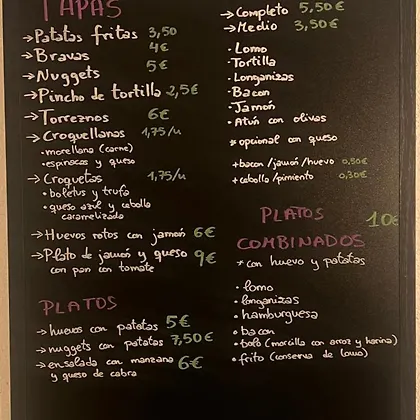 TAPAS
→Patatas fritas 3,50
→Bravas 4€
→Nuggets 5€
→Pincho de tortilla 2,5€
→Torreznos 6€
→Croquellanas 1,75/u
• morellana (carne)
• espinacas y queso
→Croquetas 1,75/u
• boletus y trufa
• queso azul y cebolla
caramelizada
→Huevos rotos con jamón 6€
→Plato de jamón y queso 9€
con pan con tomate
PLATOS
→huevos con patatas 5€
→nuggets con patatas 7,50€
→ensalada con manzana 6€
y queso de cabra
→Completo 5,50€
→Medio 3,50€
• Lomo
• Tortilla
• Longanizas
• Bacon
• Jamón
• Atún con olivas
* opcional con queso
+bacon/jamón/huevo 0,50€
+cebolla/pimiento 0,30€
PLATOS 10€
COMBINADOS
* con huevo y patatas
• lomo
• longanizas
• hamburguesa
• bacon
• bolo (morcilla con arroz y harina)
• frito (conserva de lomo)